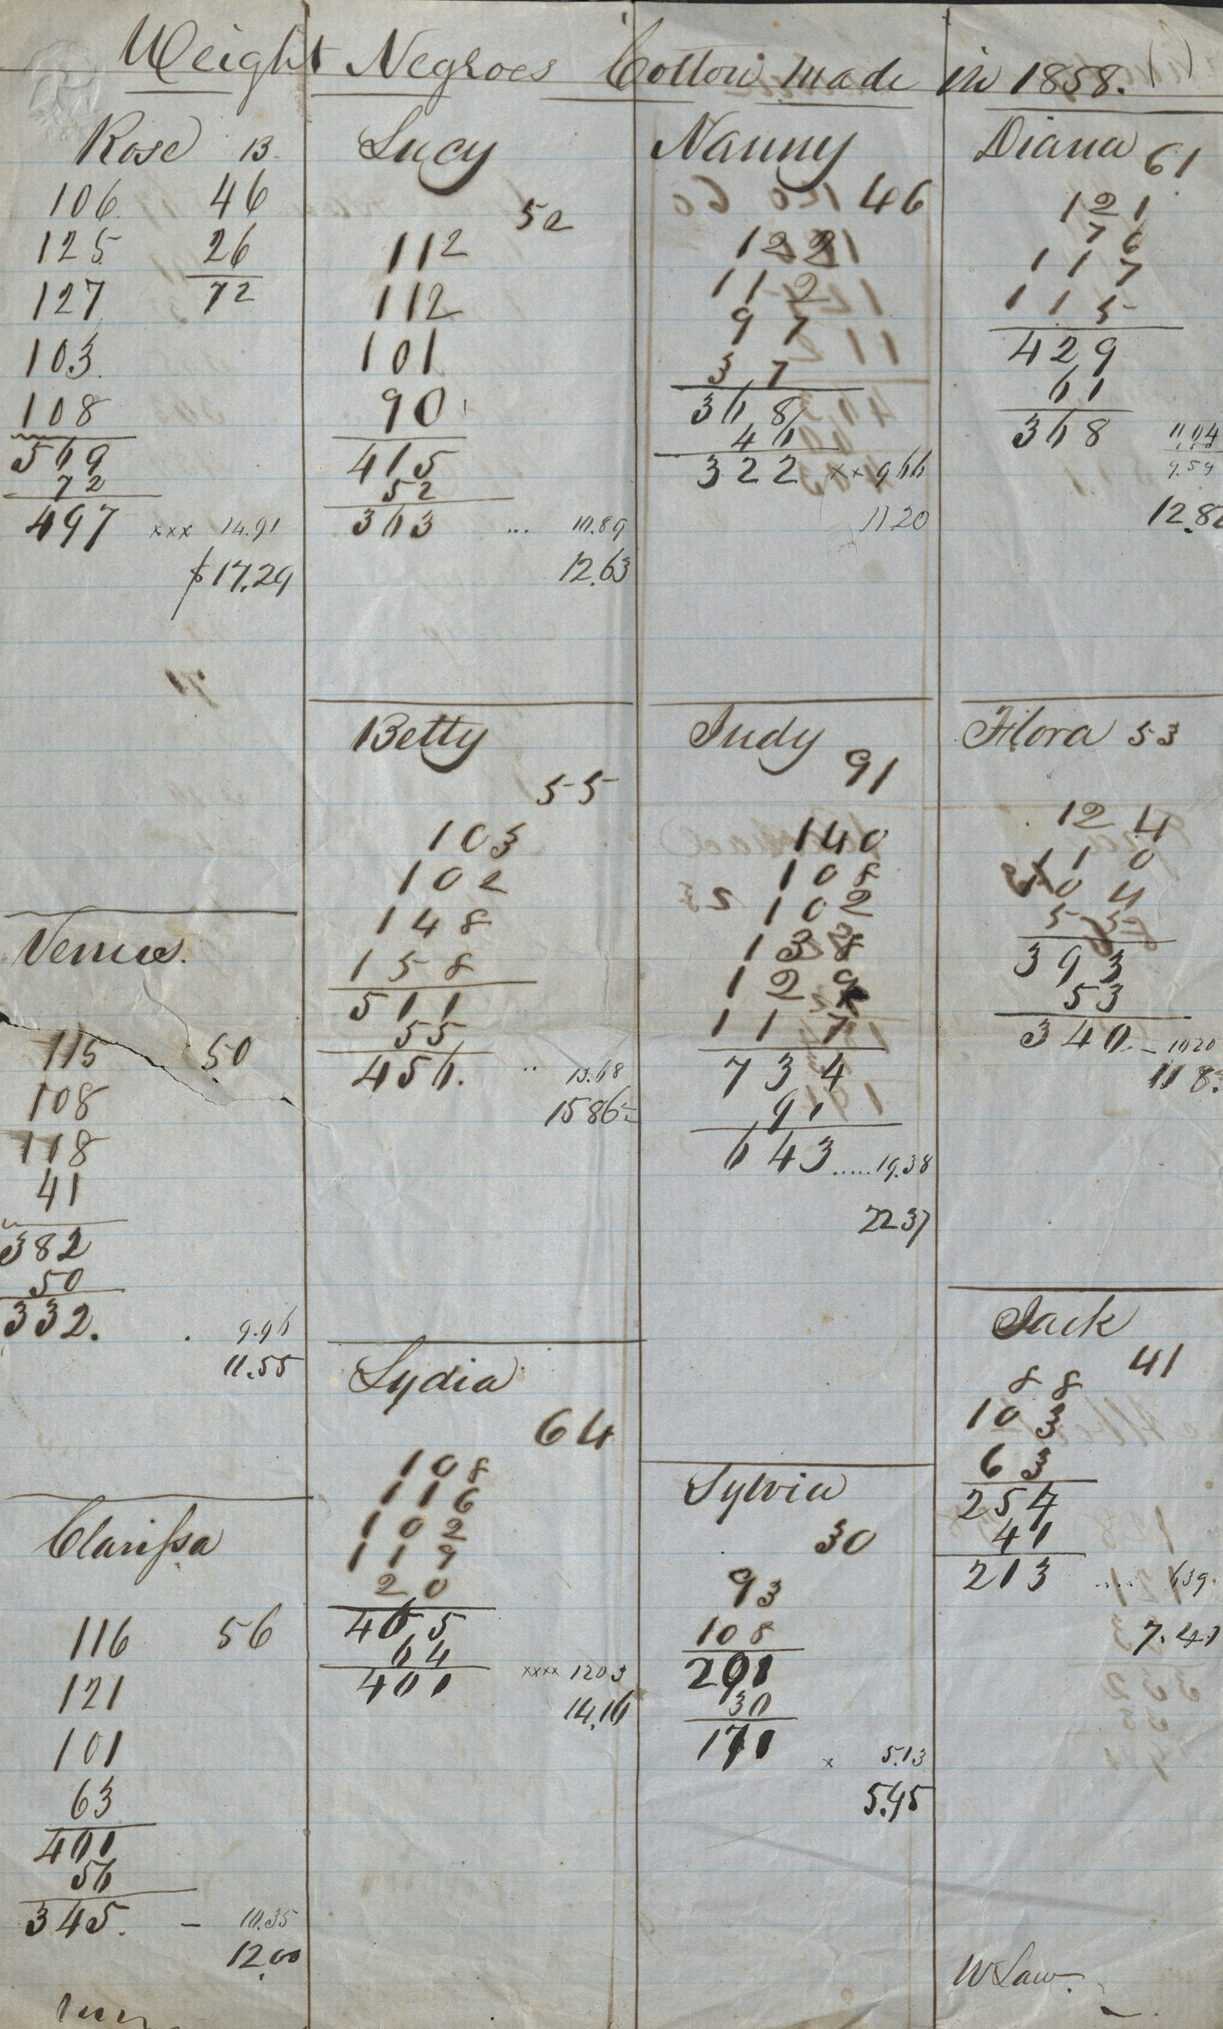 Weight Negroes Cotton made in 1858.
Rose 13.
106 46
125 26
127 72
103
108
569
72
497 xxx 14.91
$17.29
Venus.
115 50
108
118
41
382
50
332. . 9.96
11.55
Clarissa
116 56
121
101
63
401
56
345. – 10.35
12.00
Lucy
52
112
112
101
90
415
52
363 ... 10.89
12.63
Betty
55
103
102
148
158
511
55
456. .. 13.68
15 86
Lydia
64
108
116
102
119
20
465
64
401 xxxx 12 03
14.16
Nanny
46
122
112
97
37
368
46
322 xx 9 66
11 20
Judy
91
140
108
102
138
129
117
734
91
643 ..... 19.38
22 37
Sylvia
30
93
108
201
30
171 x 5.13
5.95
Diana 61
121
76
117
115
429
61
368 11.04
9.59
12.82
Flora 53
124
110
104
55
393
53
340. – 10 20
11 8
Jack
41
88
103
63
254
41
213 ..... 639.
7.41
W Law.